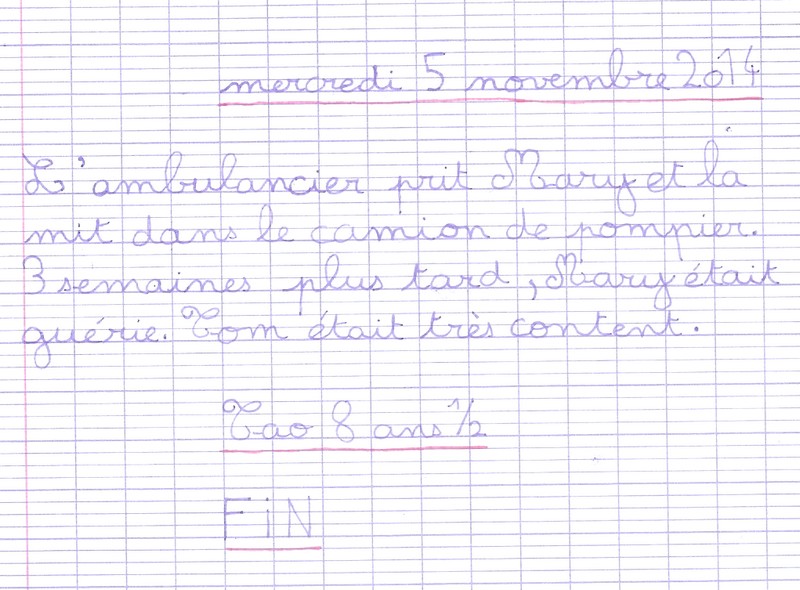 mercredi 5 novembre 2014
L'ambulancier prit Mary et la
mit dans le camion de pompier.
3 semaines plus tard, Mary était
guérie. Tom était très content.
Tao 8 ans 1/2
FiN